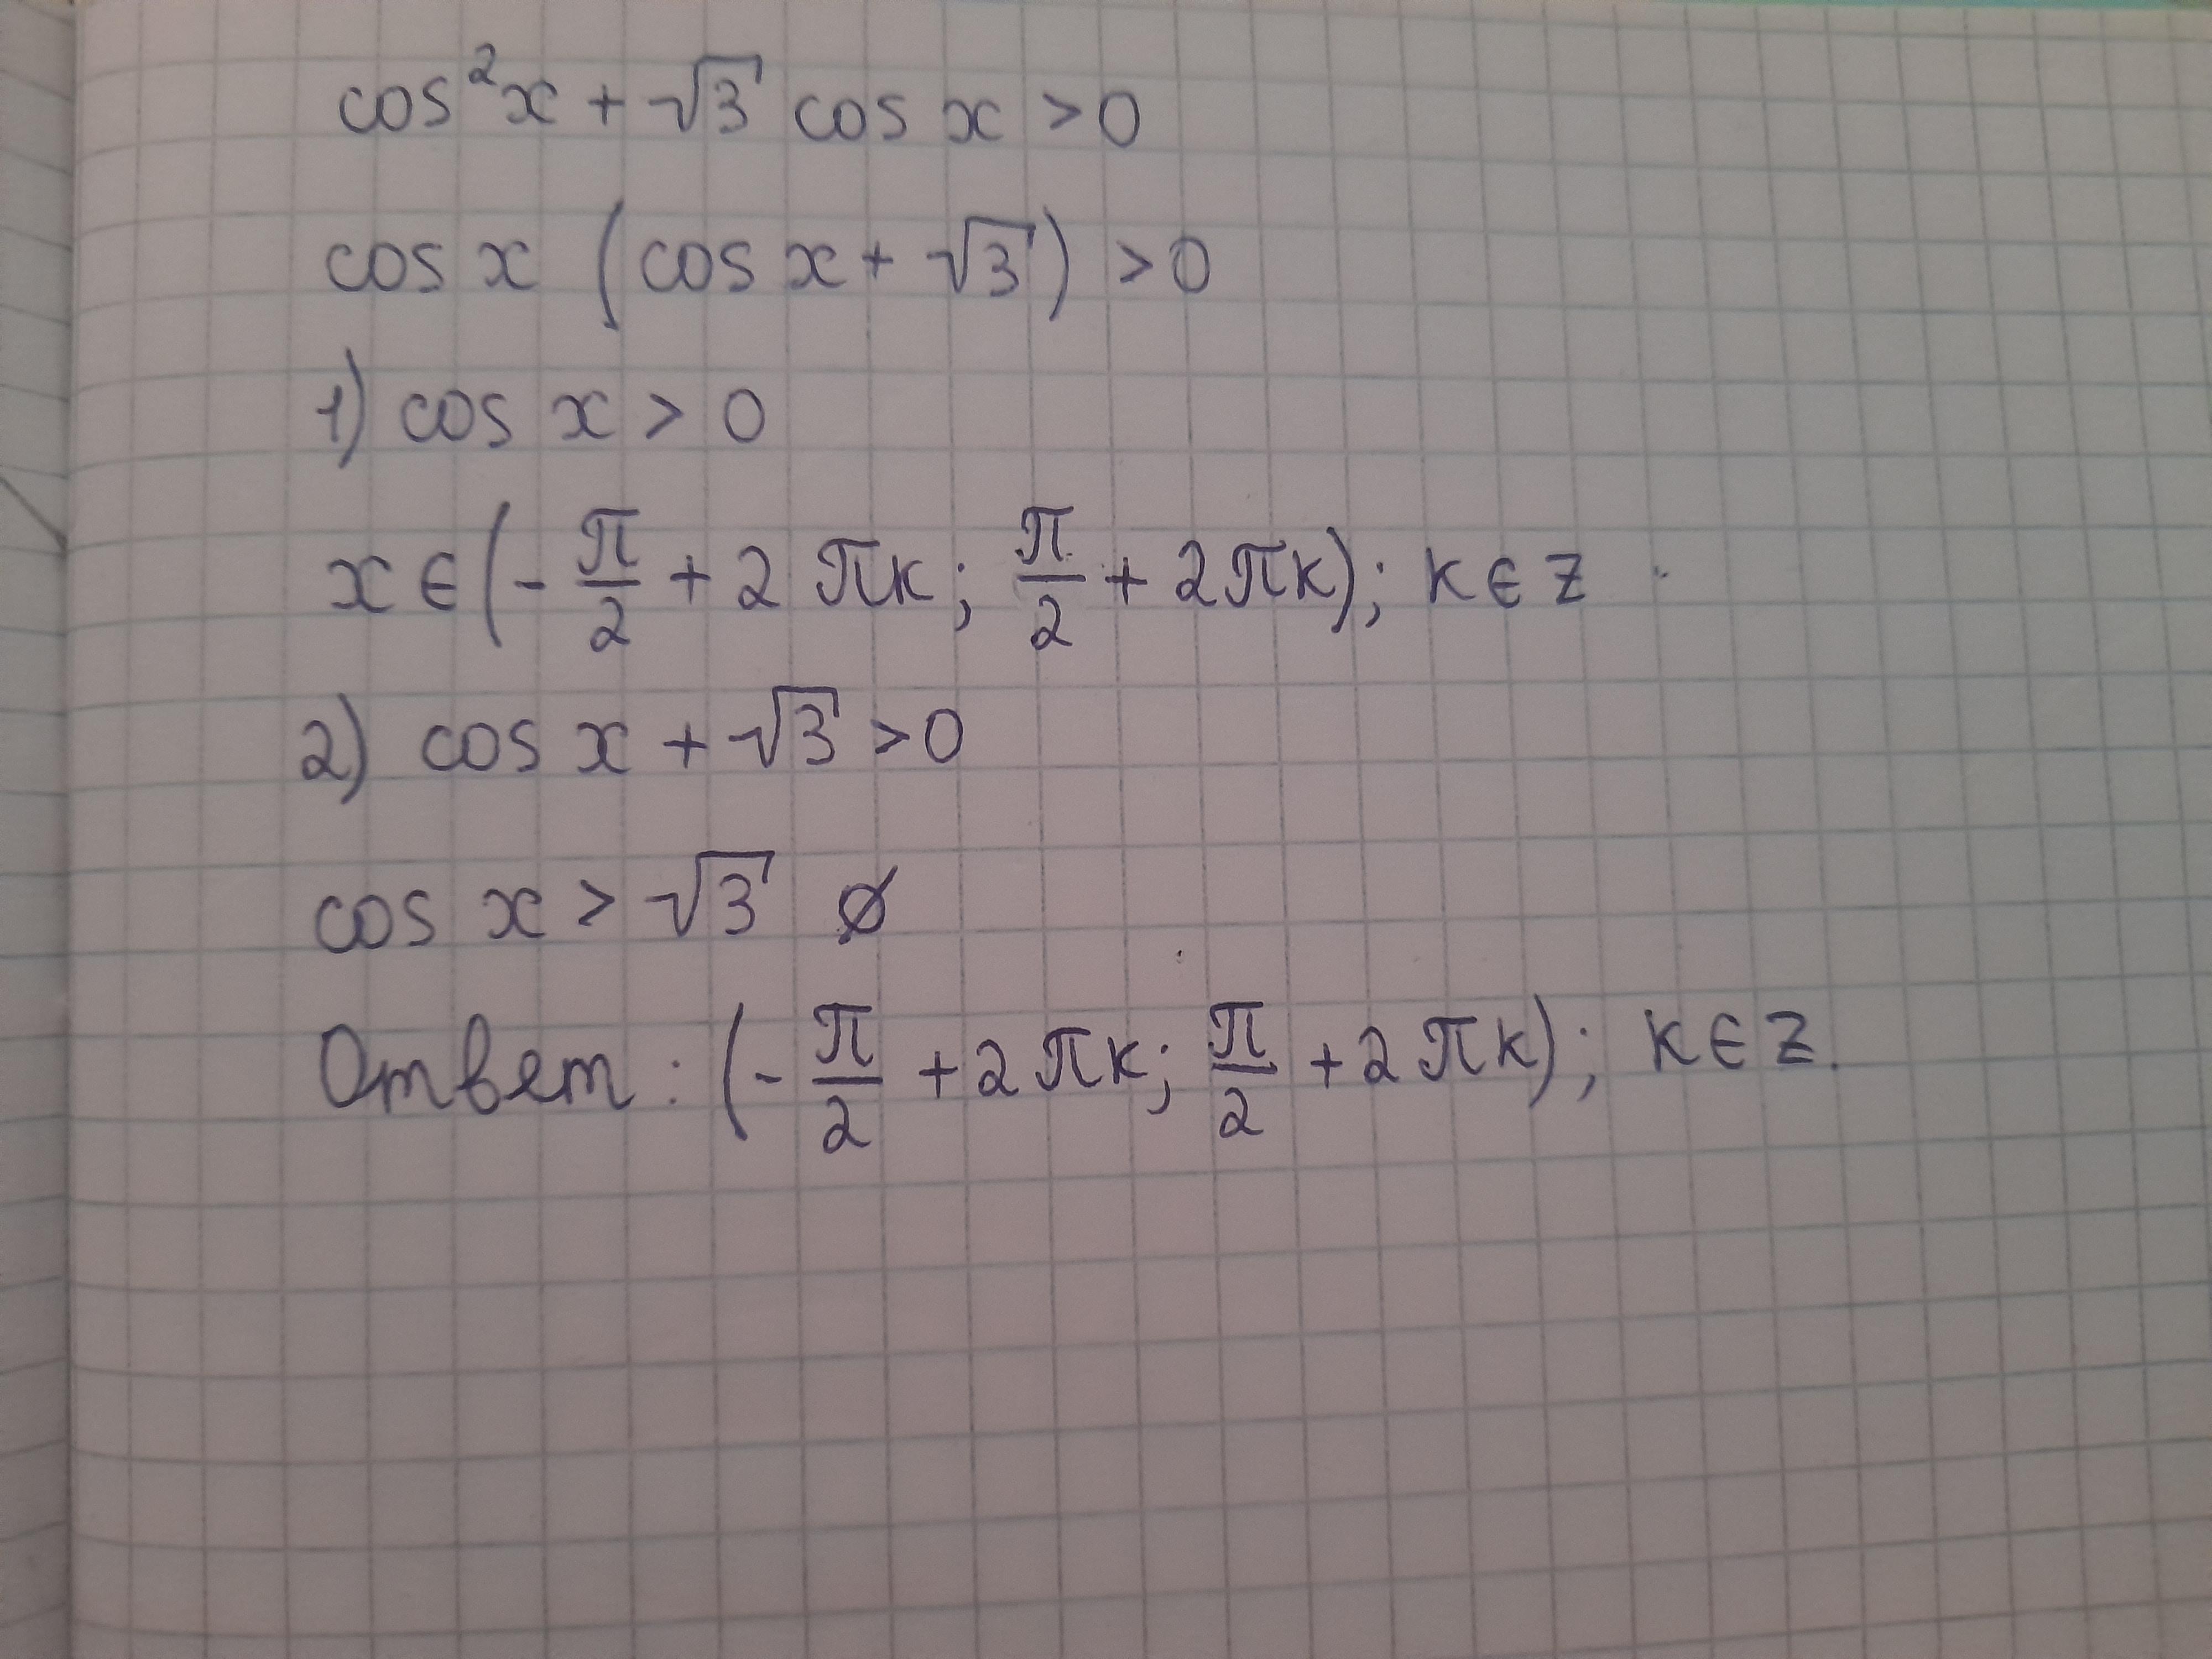 cos²x + √3 cos x > 0
cos x (cos x + √3) > 0
1) cos x > 0
x ∈ (- π/2 + 2πk; π/2 + 2πk); k ∈ Z
2) cos x + √3 > 0
cos x > √3 ∅
Ответ: (- π/2 + 2πk; π/2 + 2πk); k ∈ Z.